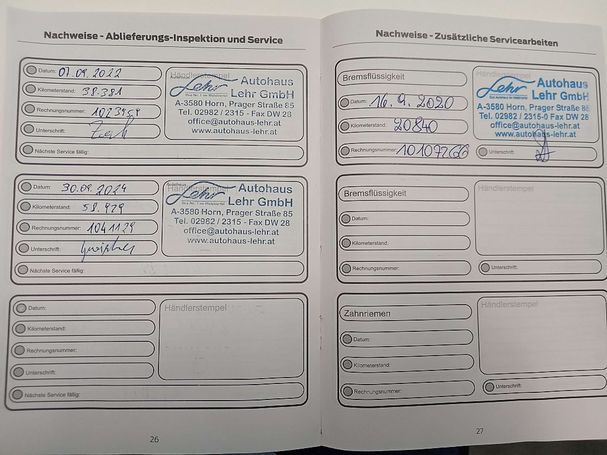 Nachweise - Ablieferungs-Inspektion und Service
Datum: 07.09.2022
Kilometerstand: 38.381
Rechnungsnummer:
Unterschrift:
Nächste Service fällig:
Händlerstempel
Lehr Autohaus
Lehr GmbH
A-3580 Horn, Prager Straße 85
Tel. 02982 / 2315 - Fax DW 28
office@autohaus-lehr.at
www.autohaus-lehr.at
Datum: 30.09.2024
Kilometerstand: 58.979
Rechnungsnummer: 1041129
Unterschrift:
Nächste Service fällig:
Händlerstempel
Lehr Autohaus
Lehr GmbH
A-3580 Horn, Prager Straße 85
Tel. 02982 / 2315 - Fax DW 28
office@autohaus-lehr.at
www.autohaus-lehr.at
Datum:
Kilometerstand:
Rechnungsnummer:
Unterschrift:
Nächste Service fällig:
Händlerstempel
26
Nachweise - Zusätzliche Servicearbeiten
Bremsflüssigkeit
Datum: 16.9.2020
Kilometerstand: 20840
Rechnungsnummer: 10107266
Unterschrift:
Lehr Autohaus
Lehr GmbH
A-3580 Horn, Prager Straße 85
Tel. 02982 / 2315-0 Fax DW 28
office@autohaus-lehr.at
www.autohaus-lehr.at
Bremsflüssigkeit
Datum:
Kilometerstand:
Rechnungsnummer:
Unterschrift:
Händlerstempel
Zahnriemen
Datum:
Kilometerstand:
Rechnungsnummer:
Unterschrift:
Händlerstempel
27